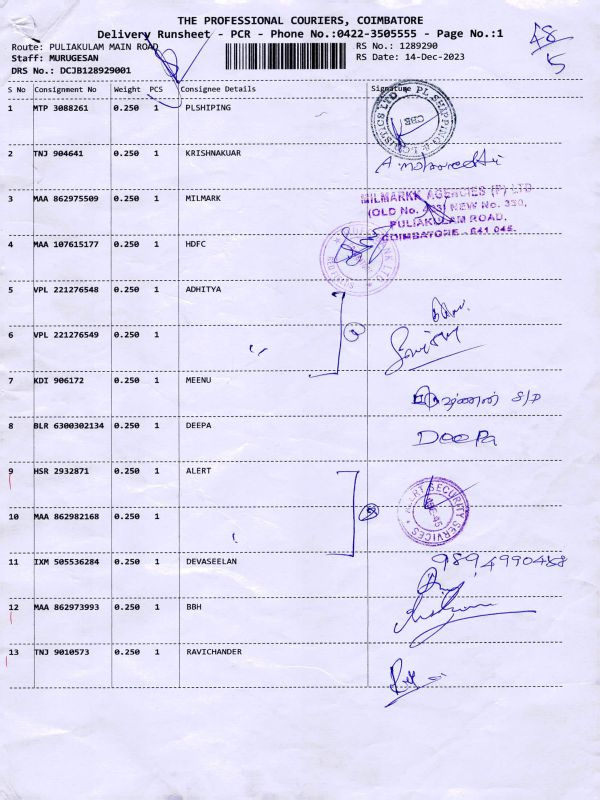 THE PROFESSIONAL COURIERS, COIMBATORE
Delivery Runsheet - PCR - Phone No.:0422-3505555 - Page No.:1
Route: PULIAKULAM MAIN ROAD
RS No.: 1289290
Staff: MURUGESAN
RS Date: 14-Dec-2023
DRS No.: DCJB128929001
48/5
S No Consignment No Weight PCS Consignee Details Signature
1 MTP 3088261 0.250 1 PLSHIPING
PL SHIPPING & LOGISTICS LTD CBE
2 TNJ 904641 0.250 1 KRISHNAKUAR
3 MAA 862975509 0.250 1 MILMARK
MILMARKK AGENCIES (P) LTD
(OLD No. 403) NEW No. 330,
PULIAKULAM ROAD,
COIMBATORE - 641 045.
4 MAA 107615177 0.250 1 HDFC
5 VPL 221276548 0.250 1 ADHITYA
6 VPL 221276549 0.250 1 ``
7 KDI 906172 0.250 1 MEENU
S/D
8 BLR 6300302134 0.250 1 DEEPA
Deepa
9 HSR 2932871 0.250 1 ALERT
ALERT SECURITY SERVICES
10 MAA 862982168 0.250 1 ``
11 IXM 505536284 0.250 1 DEVASEELAN
9894990488
12 MAA 862973993 0.250 1 BBH
13 TNJ 9010573 0.250 1 RAVICHANDER